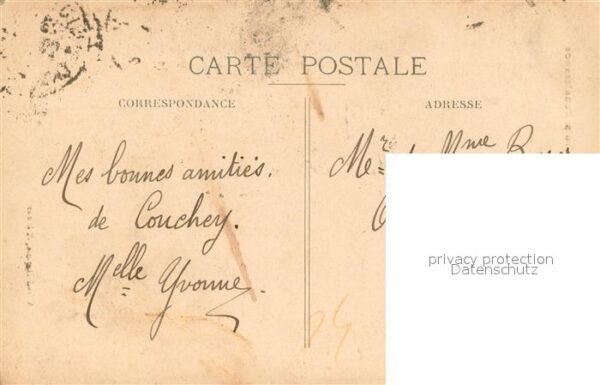 CARTE POSTALE
CORRESPONDANCE
ADRESSE
Mes bonnes amitiés.
de Couchey.
Melle Yvonne.
Mr & Mme
privacy protection
Datenschutz